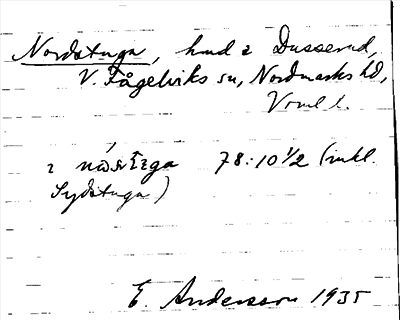 Nordstuga, hmd i Dusserud,
V. Fågelviks sn, Nordmarks hd,
Vrml l.
i 78:10 1/2 (inkl.
Sydstuga)
E. Andersson 1935